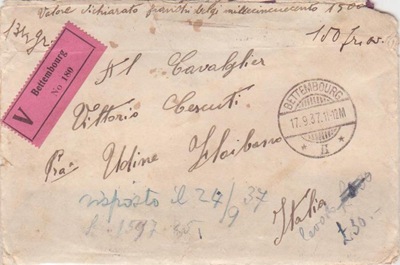 Valore dichiarato franchi belgi millecinquecento 1500
134 gr.
100 fr. or.
V
Bettembourg
No 180
Al Cavalier
Vittorio Cescutti
Pra: Udine Flaibano
Italia
BETTEMBOURG
17.9.37.11-12M
risposto il 24/9 37
£ 30.-